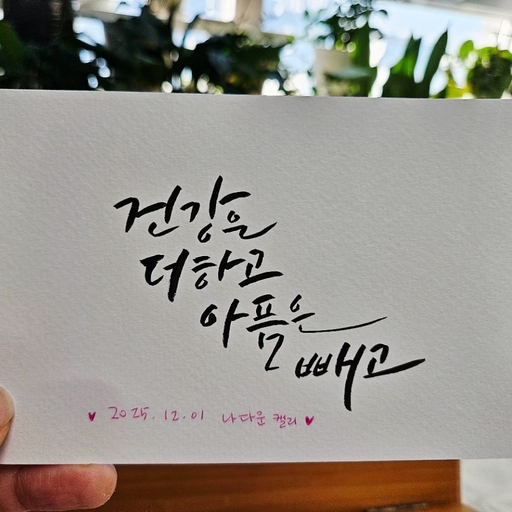 건강은
더하고
아픔은
빼고
♥ 2025.12.01 나다운 캘리 ♥